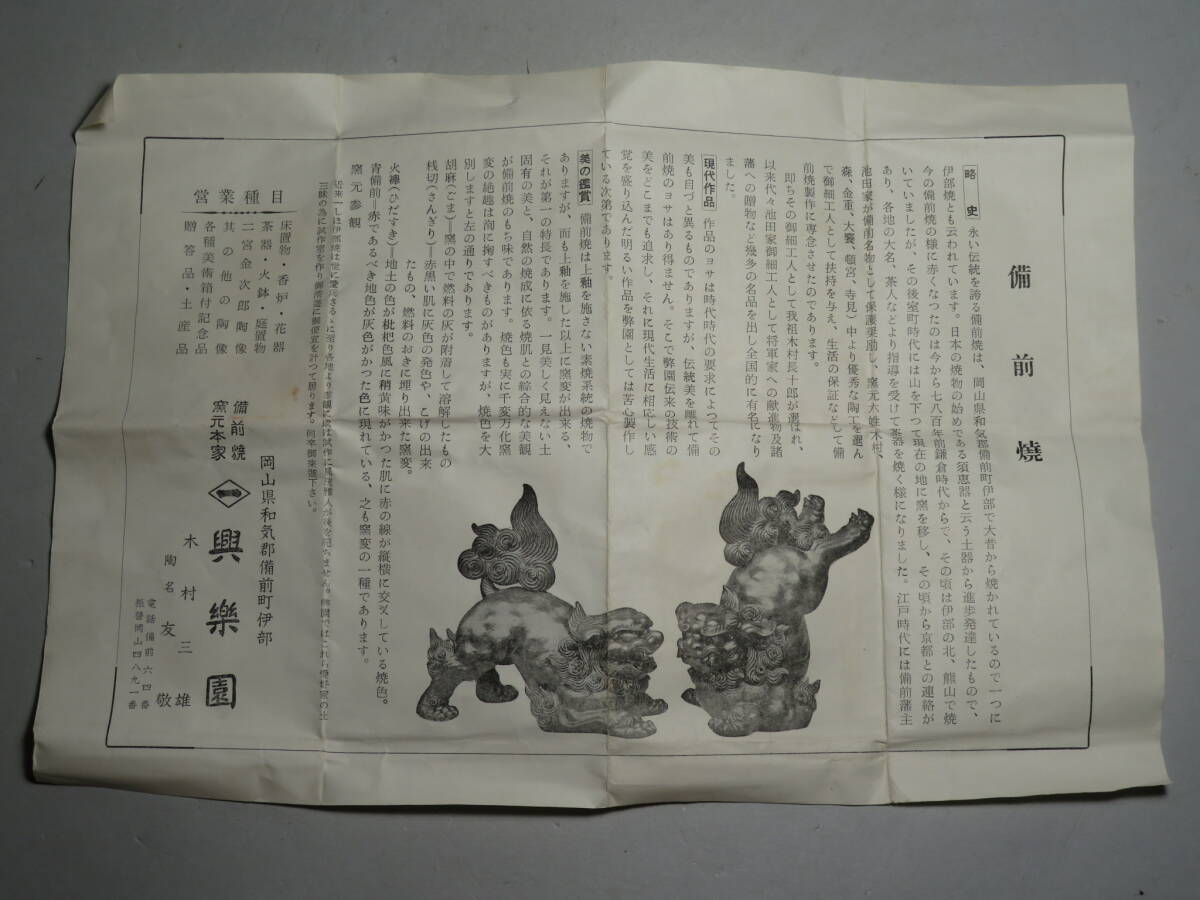 備前燒
略史 永い伝統を誇る備前焼は、岡山県和気郡備前町伊部で大昔から焼かれているので一つに
伊部焼とも云われています。日本の焼物の始めである須恵器と云う土器から進歩発達したもので、
今の備前焼の様に赤くなつたのは今から七八百年前鎌倉時代からで、その頃は伊部の北、熊山で焼
いていましたが、その後室町時代には山を下つて現在の地に窯を移し、その頃から京都との連絡が
あり、各地の大名、茶人などより指導を受けて茶器を焼く様になりました。江戸時代には備前藩主
池田家が備前名物として保護奨励し、窯元六姓木村、
森、金重、大饗、頓宮、寺見)中より優秀な陶工を選ん
で御細工人として扶持を与え、生活の保証などして備
前焼製作に専念させたのであります。
即ちその御細工人として我祖木村長十郎が選ばれ、
以来代々池田家御細工人として将軍家への献進物及諸
藩への贈物など幾多の名品を出し全国的に有名になり
ました。
現代作品 作品のヨサは時代時代の要求によつてその
美も自づと異るものでありますが、伝統美を離れて備
前焼のヨサはあり得ません。そこで弊園伝来の技術の
美をどこまでも追求し、それに現代生活に相応しい感
覚を盛り込んだ明るい作品を弊園としては苦心製作し
ている次第であります。
美の鑑賞 備前焼は上釉を施さない素焼系統の焼物で
ありますが、而も上釉を施した以上に窯変が出来る、
それが第一の特長であります。一見美しく見えない土
固有の美と、自然の焼成に依る焼肌との綜合的な美観
が備前焼のもち味であります。焼色も実に千変万化窯
変の絶趣は洵に掬すべきものがありますが、焼色を大
別しますと左の通りであります。
胡麻(ごま)―窯の中で燃料の灰が附着して溶解したもの
桟切(さんぎり)―赤黒い肌に灰色の発色や、こげの出来
たもの、燃料のおきに埋り出来た窯変。
火襷(ひだすき)―地土の色が枇杷色風に稍黄味がかつた肌に赤の線が縦横に交叉している焼色。
青備前―赤であるべき地色が灰色がかつた色に現れている、之も窯変の一種であります。
窯元参観
近来一しほ伊部焼は世に愛玩さるゝに至り各地より参観に或は試作に風流雅人が後を絶ちません。弊園ではこれら愛好家の土
三昧の為に試作室を作り御清遊に御便宜を計つて居ります。何卒御来遊下さい。
営業種目
床置物・香炉・花器
茶器・火鉢・庭置物
二宮金次郎陶像
其の他の陶像
各種美術箱付記念品
贈答品・土産品
岡山県和気郡備前町伊部
備前焼
窯元本家
一
興樂園
木村三雄
陶名友敬
電話備前六四番
振替岡山四八九一番